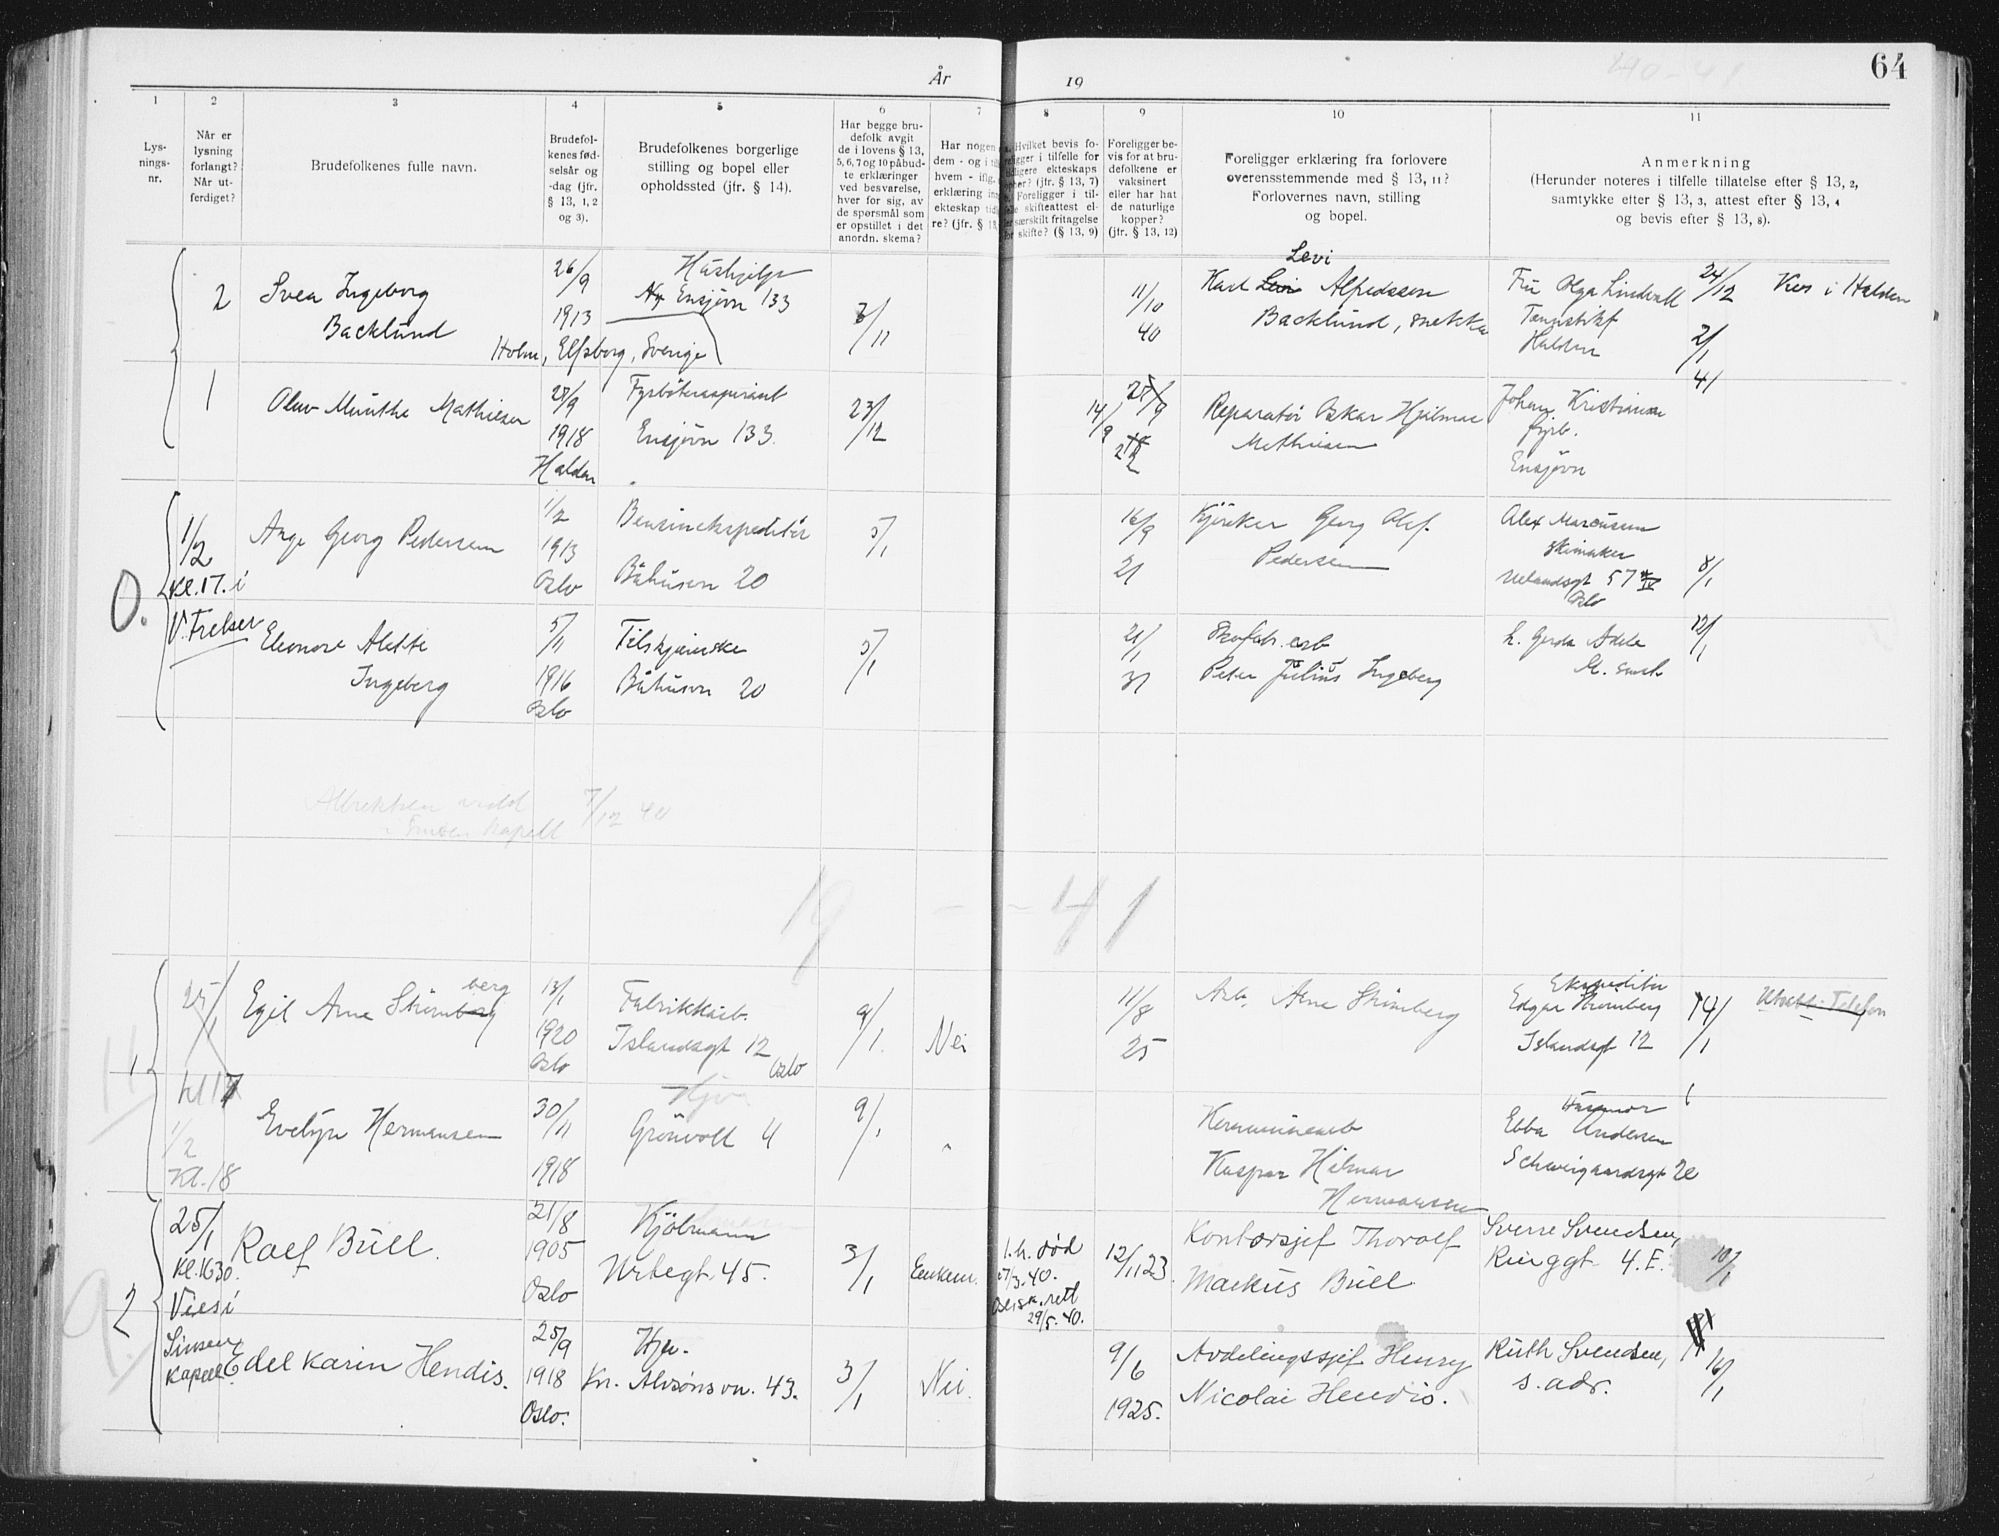 År 19
40-41
64
1 2 3 4 5 6 7 8 9 10 11
Lys-
nings-
nr.
Når er
lysning
forlangt?
Når ut-
ferdiget?
Brudefolkenes fulle navn.
Brudefol-
kenes fød-
selsår og
-dag (jfr.
§ 13, 1, 2
og 3).
Brudefolkenes borgerlige
stilling og bopel eller
opholdssted (jfr. § 14).
Har begge bru-
defolk avgit
de i lovens § 13,
5, 6, 7 og 10 påbud-
te erklæringer
ved besvarelse,
hver for sig, av
de spørsmål som
er opstillet i det
anordn. skema?
Har nogen
dem - og i
hvem - iflg.
erklæring in
ekteskap tid
re? (jfr. § 13,
Hvilket bevis fo-
religger i tilfelle for
tidligere ekteskaps
ophør? (jfr. § 13, 7)
Foreligger i til-
felle skifteattest el-
særskilt fritagelse
for skifte? (§ 13, 9)
Foreligger be-
vis for at bru-
defolkene er
vaksinert
eller har hat
de naturlige
kopper?
(jfr. § 13, 12)
Foreligger erklæring fra forlovere
overensstemmende med § 13, 11?
Forlovernes navn, stilling
og bopel.
Anmerkning
(Herunder noteres i tilfelle tillatelse efter § 13, 2,
samtykke efter § 13, 3, attest efter § 13, 4
og bevis efter § 13, 8).
2
Svea Ingeborg
Backlund
26/9
1913
Holm, Elfsborg, Sverige
Hushjelp
Ensjøvn 133
11/10
40
Levi
Karl Alfredsson
Backlund, snekker
Fru Olga Lindvall
Halden
24/12
2/1
41
i Halden
1
Olav Munthe Mathisen
28/9
1918
Halden
Fyrbøteraspirant
Ensjøvn 133.
23/12
14/9
Reparatør Oskar Hjalmar
Mathisen
Johan Kristiansen
fyrb.
Ensjøvn
O.
1/2
Kl. 17. i
V. Frelser
Aage Georg Pedersen
1/2
1913
Oslo
Bensinekspeditør
Båhusvn 20
5/1
16/9
21
Georg Olaf
Pedersen
Alex Marcussen
skimaker
Uelandsgt 57 IV
Oslo
8/1
Eleonore Alette
Ingeberg
5/11
1916
Oslo
Båhusvn 20
5/1
21/1
31
Skofabr. arb
Peter Julius Ingeberg
L. Gerda Adele
12/1
7/12 40
19 - - 41
1
25/1
Kl 17
Egil Arne Strømberg
13/1
1920
Oslo
Fabrikkarb.
Islandsgt 12
Oslo
9/1
Nei
11/8
25
Arb. Arne Strømberg
Ekspeditør
Edgar Strømberg
Islandsgt 12
14/1
Telefon
1/2
Kl. 18
Evelyn Hermansen
30/11
1918
Hjv.
Grønvoll 4
9/1
"
Kommunearb
Kaspar Hilmar
Hermansen
Husmor
Ebba Andersen
Schweigaardsgt
2
25/1
Kl. 1630.
Vies i
Sinsen
Kapell
Rolf Bull.
21/8
1905
Oslo
Kjølmann
Urtegt. 45.
3/1
Enkem.
1. h. død
27/3.40.
Oslo sk.rett
29/5.40.
12/11 23.
Kontorsjef Thorolf
Markus Bull.
Sverre Svendsen,
Ringgt. 4. E.
10/1
Edel Karin Hendis.
25/9
1918
Oslo.
Hjv.
Kr. Alvsøns vn. 43.
3/1
Nei.
9/6
1925.
Avdelingssjef Henry
Nicolai Hendis.
Ruth Svendsen,
s. adr.
16/1